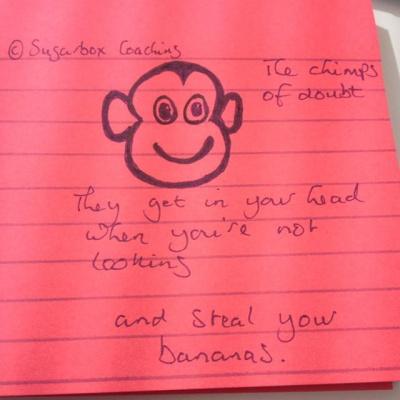 © Sugarbox Coaching
The chimps
of doubt
They get in your head
when you're not
looking
and steal your
bananas.